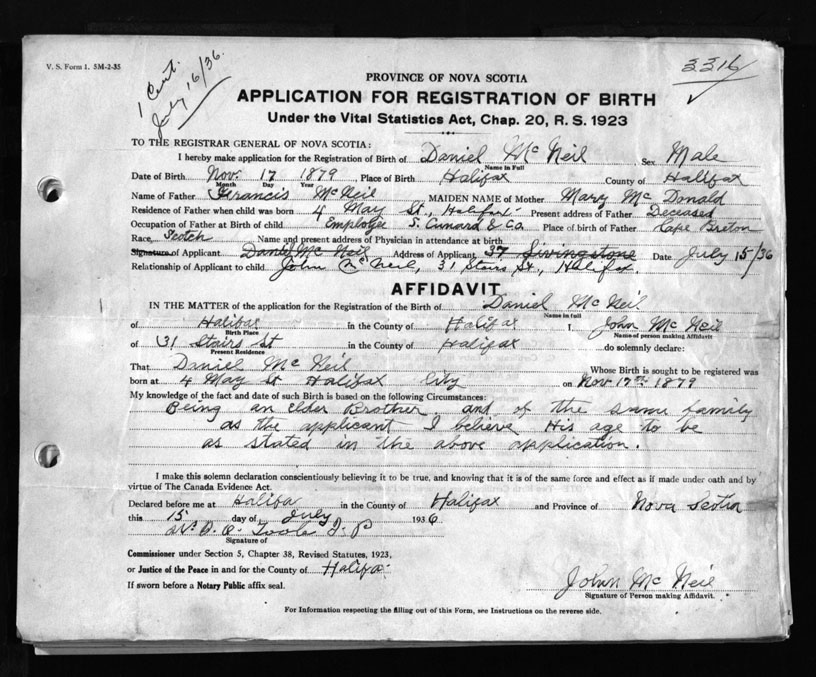 V. S. Form 1. 5M-2-35
1 Cert.
July 16/36.
3316
PROVINCE OF NOVA SCOTIA
APPLICATION FOR REGISTRATION OF BIRTH
Under the Vital Statistics Act, Chap. 20, R. S. 1923
TO THE REGISTRAR GENERAL OF NOVA SCOTIA:
I hereby make application for the Registration of Birth of Daniel McNeil Sex Male
Name in Full
Date of Birth Nov. 17 1879 Place of Birth Halifax County of Halifax
Month Day Year
Name of Father Francis McNeil MAIDEN NAME of Mother Mary McDonald
Residence of Father when child was born 4 May St., Halifax Present address of Father Deceased
Occupation of Father at Birth of child Employee S. Cunard & Co. Place of birth of Father Cape Breton
Race Scotch Name and present address of Physician in attendance at birth
Signature of Applicant Daniel McNeil Address of Applicant 37 Livingstone Date July 15/36
Relationship of Applicant to child John McNeil, 31 Stairs St., Halifax.
AFFIDAVIT
IN THE MATTER of the application for the Registration of the Birth of Daniel McNeil
Name in full
of Halifax in the County of Halifax I, John McNeil
Birth Place Name of person making Affidavit
of 31 Stairs St in the County of Halifax do solemnly declare:
Present Residence
That Daniel McNeil Whose Birth is sought to be registered was
born at 4 May St Halifax City on Nov 17th 1879
My knowledge of the fact and date of such Birth is based on the following Circumstances:
Being an elder Brother and of the same family
as the applicant I believe His age to be
as stated in the above application.
I make this solemn declaration conscientiously believing it to be true, and knowing that it is of the same force and effect as if made under oath and by
virtue of The Canada Evidence Act.
Declared before me at Halifa in the County of Halifax and Province of Nova Scotia
this 15 day of July 1936
J. P
Signature of
Commissioner under Section 5, Chapter 38, Revised Statutes, 1923,
or Justice of the Peace in and for the County of Halifax
If sworn before a Notary Public affix seal.
John McNeil
Signature of Person making Affidavit.
For Information respecting the filling out of this Form, see Instructions on the reverse side.